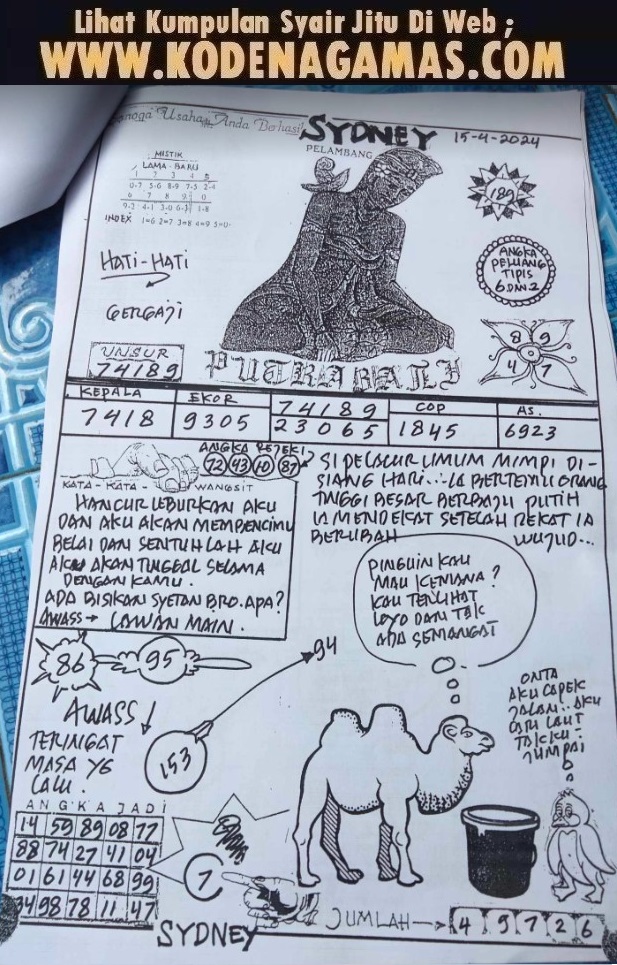 Lihat Kumpulan Syair Jitu Di Web ;
WWW.KODENAGAMAS.COM
Usaha Anda Berhasil
SYDNEY 15-4-2024
PELAMBANG
MISTIK
LAMA - BARU
1 2 3 4 5
0-7 5-6 8-9 7-5 2-4
6 7 8 9 0
9-2 4-1 3-0 6-3 1-8
INDEX 1=6 2=7 3=8 4=9 5=0
189
HATI-HATI
GERGAJI
ANGKA
PELUANG
TIPIS
6 DAN 2
UNSUR
74189
PUTRA BALI
8 9
4 7
KEPALA EKOR 74189 COP AS.
7418 9305 23065 1845 6923
ANGKA REJEKI
72 43 10 87
KATA - KATA WANGSIT
HANCUR LEBURKAN AKU
DAN AKU AKAN MEMBENCIMU
BELAI DAN SENTUHLAH AKU
AKU AKAN TINGGAL SELAMA
DENGAN KAMU.
ADA BISIKAN SYETAN BRO. APA?
AWASS → LAWAN MAIN.
SI PELACUR UMUM MIMPI DI-
SIANG HARI... IA BERTEMU ORANG
TINGGI BESAR BERBAJU PUTIH
IA MENDEKAT SETELAH DEKAT IA
BERUBAH WUJUD...
PINGUIN KAU
MAU KEMANA?
KAU TERLIHAT
LOYO DAN TAK
ADA SEMANGAT
86 95
94
AWASS
TERINGAT
MASA YG
LALU.
153
ONTA
AKU CAPEK
JALAN.. AKU
CARI LAUT
TAK KU-
JUMPAI
ANGKA JADI
14 59 89 08 77
88 74 27 41 04
01 61 44 68 99
34 98 78 11 47
7
JUMLAH → 4 9 7 2 6
SYDNEY